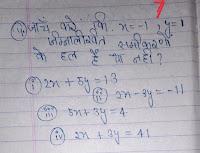 जाँच करे कि x=-1, y=1
निम्नलिखित समीकरणों
के हल है या नहीं?
(i) 2x + 5y = 13
(ii) 2x - 3y = -11
(iii) 5x + 3y = 4
(iv) 2x + 3y = 41